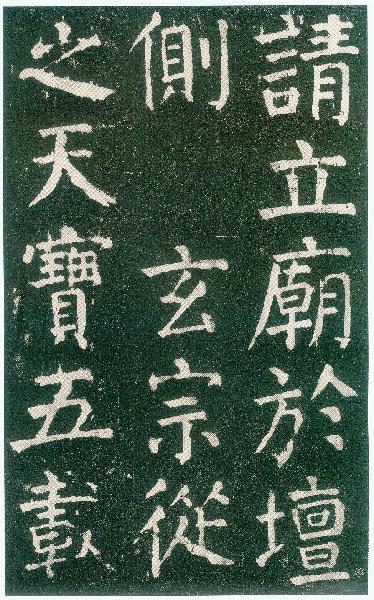 請立廟於壇
側 玄宗從
之天寶五載